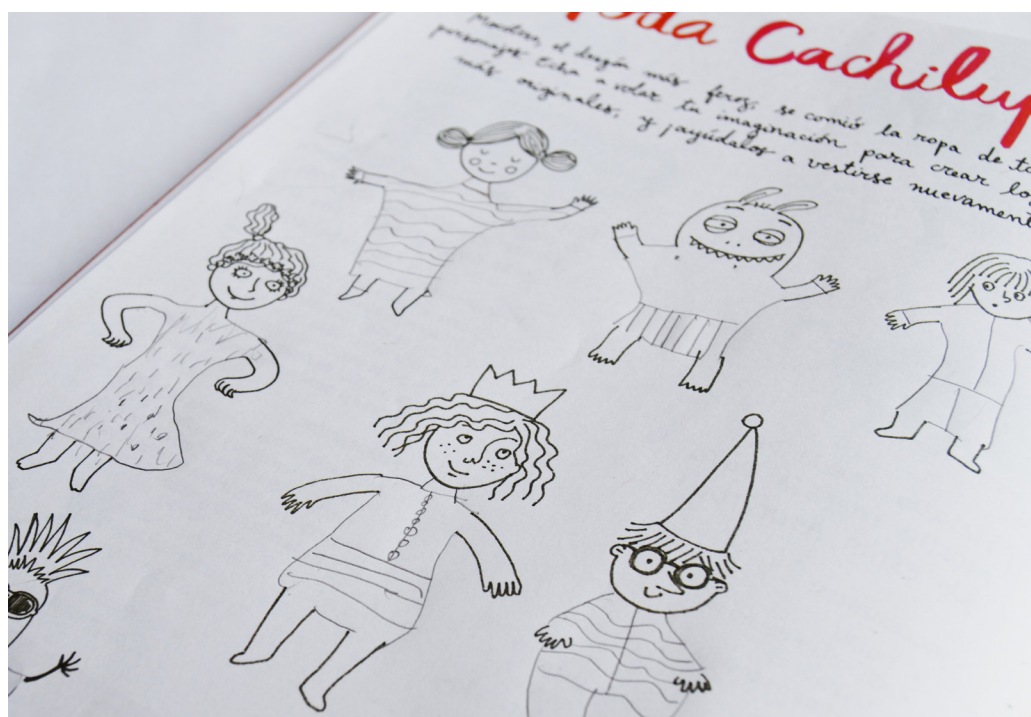 oda Cachilup
el dragón más feroz, se comió la ropa de to
personajes. Echa a volar tu imaginación para crear los
más originales, y ¡ayúdalos a vestirse nuevament